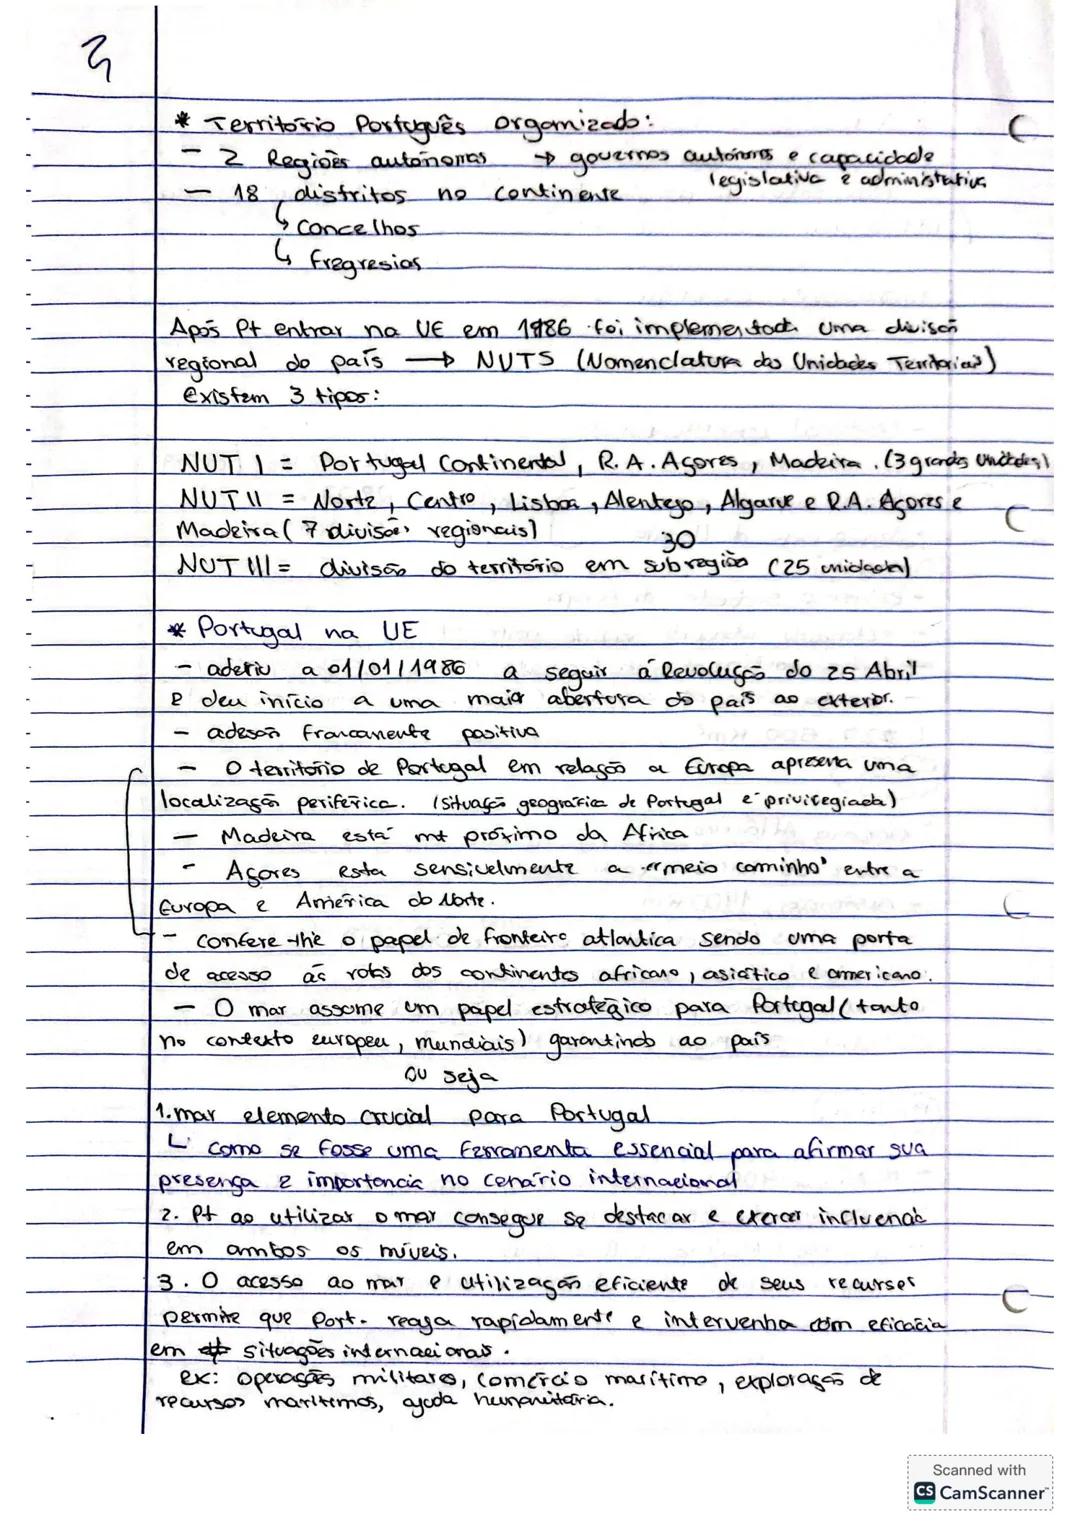 3
* Território Português organizado:
- 2 Regiões autónomas → governos autónomos e capacidade
legislativa e administrativa
- 18 distritos no continente
↳ Concelhos
↳ fregresias
Após Pt entrar na UE em 1986 foi implementada uma divisão
regional do país → NUTS (Nomenclatura das Unidades Territoriais)
existem 3 tipos:
NUT I = Portugal Continental, R.A. Açores, Madeira. (3 grandes Unidades)
NUT II = Norte, Centro, Lisboa, Alentejo, Algarve e R.A. Açores e
Madeira (7 divisões regionais)
30
NUT III = divisão do território em subregião (25 unidades)
* Portugal na UE
- aderiu a 01/01/1986 a seguir á Revolução do 25 Abril
e deu início a uma maior abertura do país ao exterior.
- adesão francamente positiva
- O território de Portugal em relação a Europa apresenta uma
localização periférica. (situação geográfica de Portugal é privilegiada)
- Madeira está mt próximo da Africa
- Açores esta sensivelmente a "meio caminho" entre a
Europa e América do Norte.
- confere-lhe o papel de fronteira atlantica sendo uma porta
de acesso ás rotas dos continentes africano, asiático e americano.
- O mar assume um papel estratégico para Portugal (tanto
no contexto europeu, mundiais) garantindo ao país
ou seja
1. mar elemento crucial para Portugal
↳ como se fosse uma ferramenta essencial para afirmar sua
presença e importancia no cenário internacional
2. Pt ao utilizar o mar consegue se destacar e exercer influencia
em ambos os níveis.
3. O acesso ao mar e utilização eficiente de seus recursos
permite que Port. reaja rapidamente e intervenha com eficácia
em situações internacionais.
ex: operações militares, comércio marítimo, exploração de
recursos marítimos, ajuda humanitária.
Scanned with
CS CamScanner